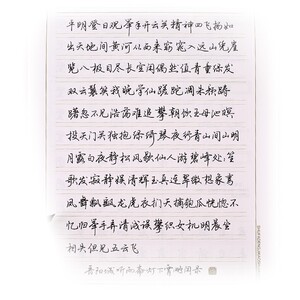 平明登日观举手开云关精神四飞扬如
出天地间黄河从西来窈窕入远山凭崖
览八极目尽长空闲偶然值青童绿发
双云鬟笑我晚学仙蹉跎凋朱颜踌
躇忽不见浩荡难追攀朝饮王母池暝
投天门关独抱绿绮琴夜行青山间山明
月露白夜静松风歇仙人游碧峰处处笙
歌发寂静娱清晖玉真连翠微想象鸾
凤舞飘飘龙虎衣扪天摘匏瓜恍惚不
忆归举手弄清浅误攀织女机明晨坐
相失但见五云飞